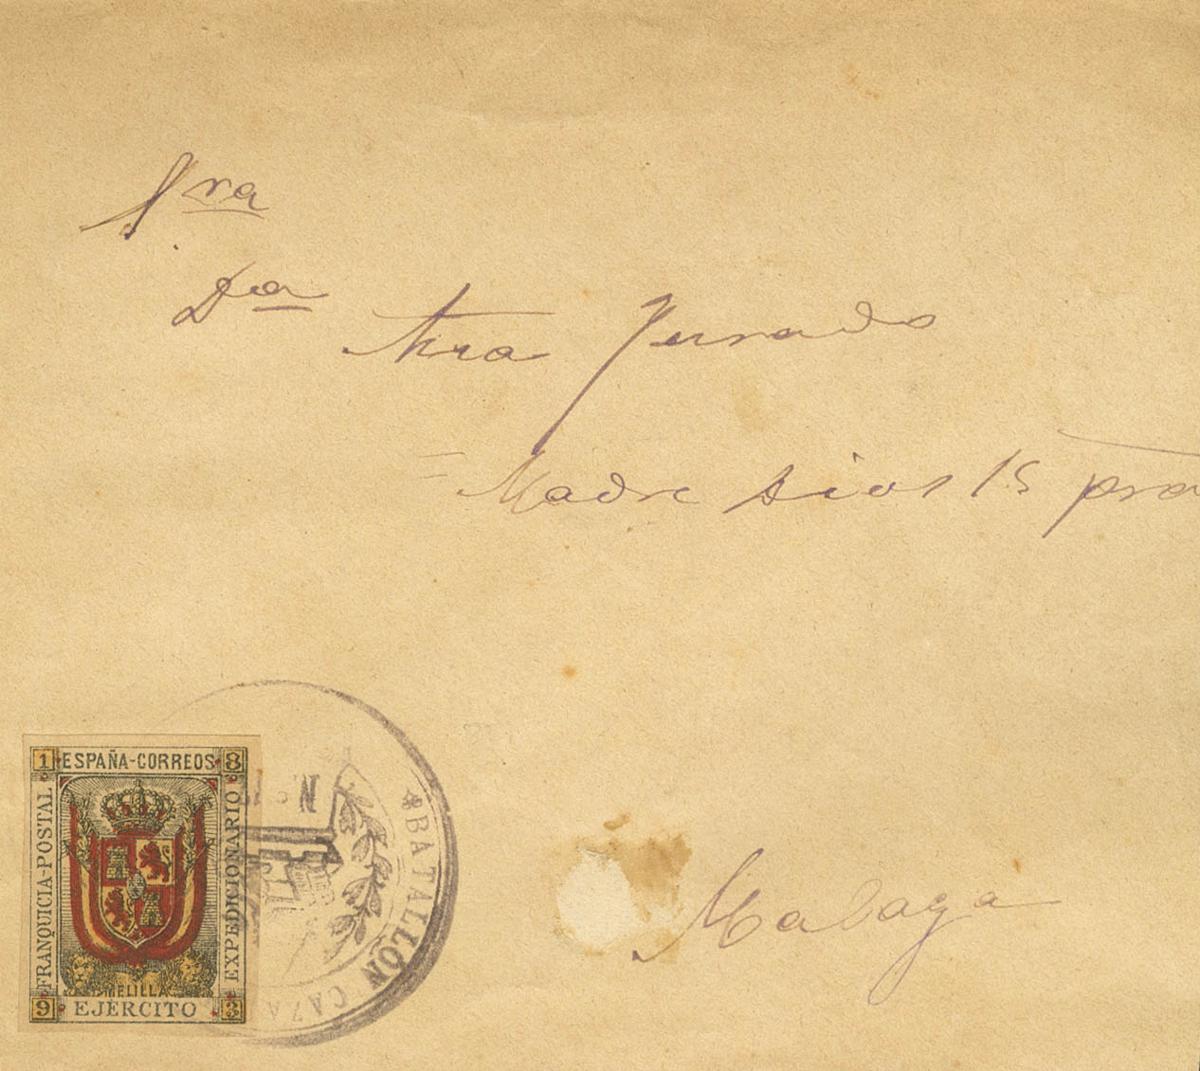 Sra
Da Ana Jurado
= Madre Dios 15 pra
Malaga
1 ESPAÑA-CORREOS 8
FRANQUICIA-POSTAL
EXPEDICIONARIO
MELILLA
9 EJÉRCITO 3
BATALLÓN CAZA
N.º